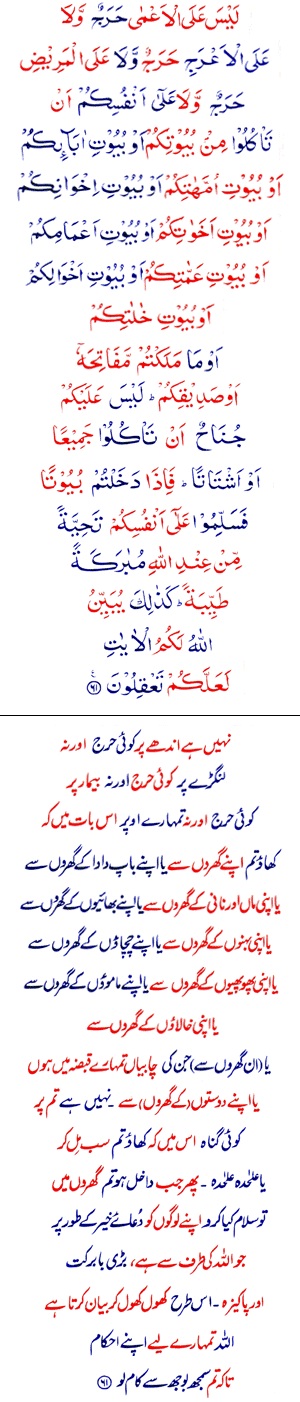 لَيْسَ عَلَى الْاَعْمٰى حَرَجٌ وَّلَا
عَلَى الْاَعْرَجِ حَرَجٌ وَّلَا عَلَى الْمَرِيْضِ
حَرَجٌ وَّلَا عَلٰٓى اَنْفُسِكُمْ اَنْ
تَاْكُلُوْا مِنْۢ بُيُوْتِكُمْ اَوْ بُيُوْتِ اٰبَآئِكُمْ
اَوْ بُيُوْتِ اُمَّهٰتِكُمْ اَوْ بُيُوْتِ اِخْوَانِكُمْ
اَوْ بُيُوْتِ اَخَوٰتِكُمْ اَوْ بُيُوْتِ اَعْمَامِكُمْ
اَوْ بُيُوْتِ عَمّٰتِكُمْ اَوْ بُيُوْتِ اَخْوَالِكُمْ
اَوْ بُيُوْتِ خٰلٰتِكُمْ
اَوْ مَا مَلَكْتُمْ مَّفَاتِحَهٗٓ
اَوْ صَدِيْقِكُمْ ؕ لَيْسَ عَلَيْكُمْ
جُنَاحٌ اَنْ تَاْكُلُوْا جَمِيْعًا
اَوْ اَشْتَاتًا ؕ فَاِذَا دَخَلْتُمْ بُيُوْتًا
فَسَلِّمُوْا عَلٰٓى اَنْفُسِكُمْ تَحِيَّةً
مِّنْ عِنْدِ اللّٰهِ مُبٰرَكَةً
طَيِّبَةً ؕ كَذٰلِكَ يُبَيِّنُ
اللّٰهُ لَكُمُ الْاٰيٰتِ
لَعَلَّكُمْ تَعْقِلُوْنَ ﴿۶۱﴾
نہیں ہے اندھے پر کوئی حرج اور نہ
لنگڑے پر کوئی حرج اور نہ بیمار پر
کوئی حرج اور نہ تمہارے اوپر اس بات میں کہ
کھاؤ تم اپنے گھروں سے یا اپنے باپ دادا کے گھروں سے
یا اپنی ماں اور نانی کے گھروں سے یا اپنے بھائیوں کے گھروں سے
یا اپنی بہنوں کے گھروں سے یا اپنے چچاؤں کے گھروں سے
یا اپنی پھوپھیوں کے گھروں سے یا اپنے ماموؤں کے گھروں سے
یا اپنی خالاؤں کے گھروں سے
یا (ان گھروں سے) جن کی چابیاں تمہارے قبضہ میں ہوں
یا اپنے دوستوں (کے گھروں) سے ۔ نہیں ہے تم پر
کوئی گناہ اس میں کہ کھاؤ تم سب مل کر
یا علٰحدہ علٰحدہ ۔ پھر جب داخل ہو تم گھروں میں
تو سلام کیا کرو اپنے لوگوں کو دُعائے خیر کے طور پر
جو اللہ کی طرف سے ہے، بڑی بابرکت
اور پاکیزہ ۔ اس طرح کھول کھول کر بیان کرتا ہے
اللہ تمہارے لیے اپنے احکام
تاکہ تم سمجھ بوجھ سے کام لو ﴿۶۱﴾